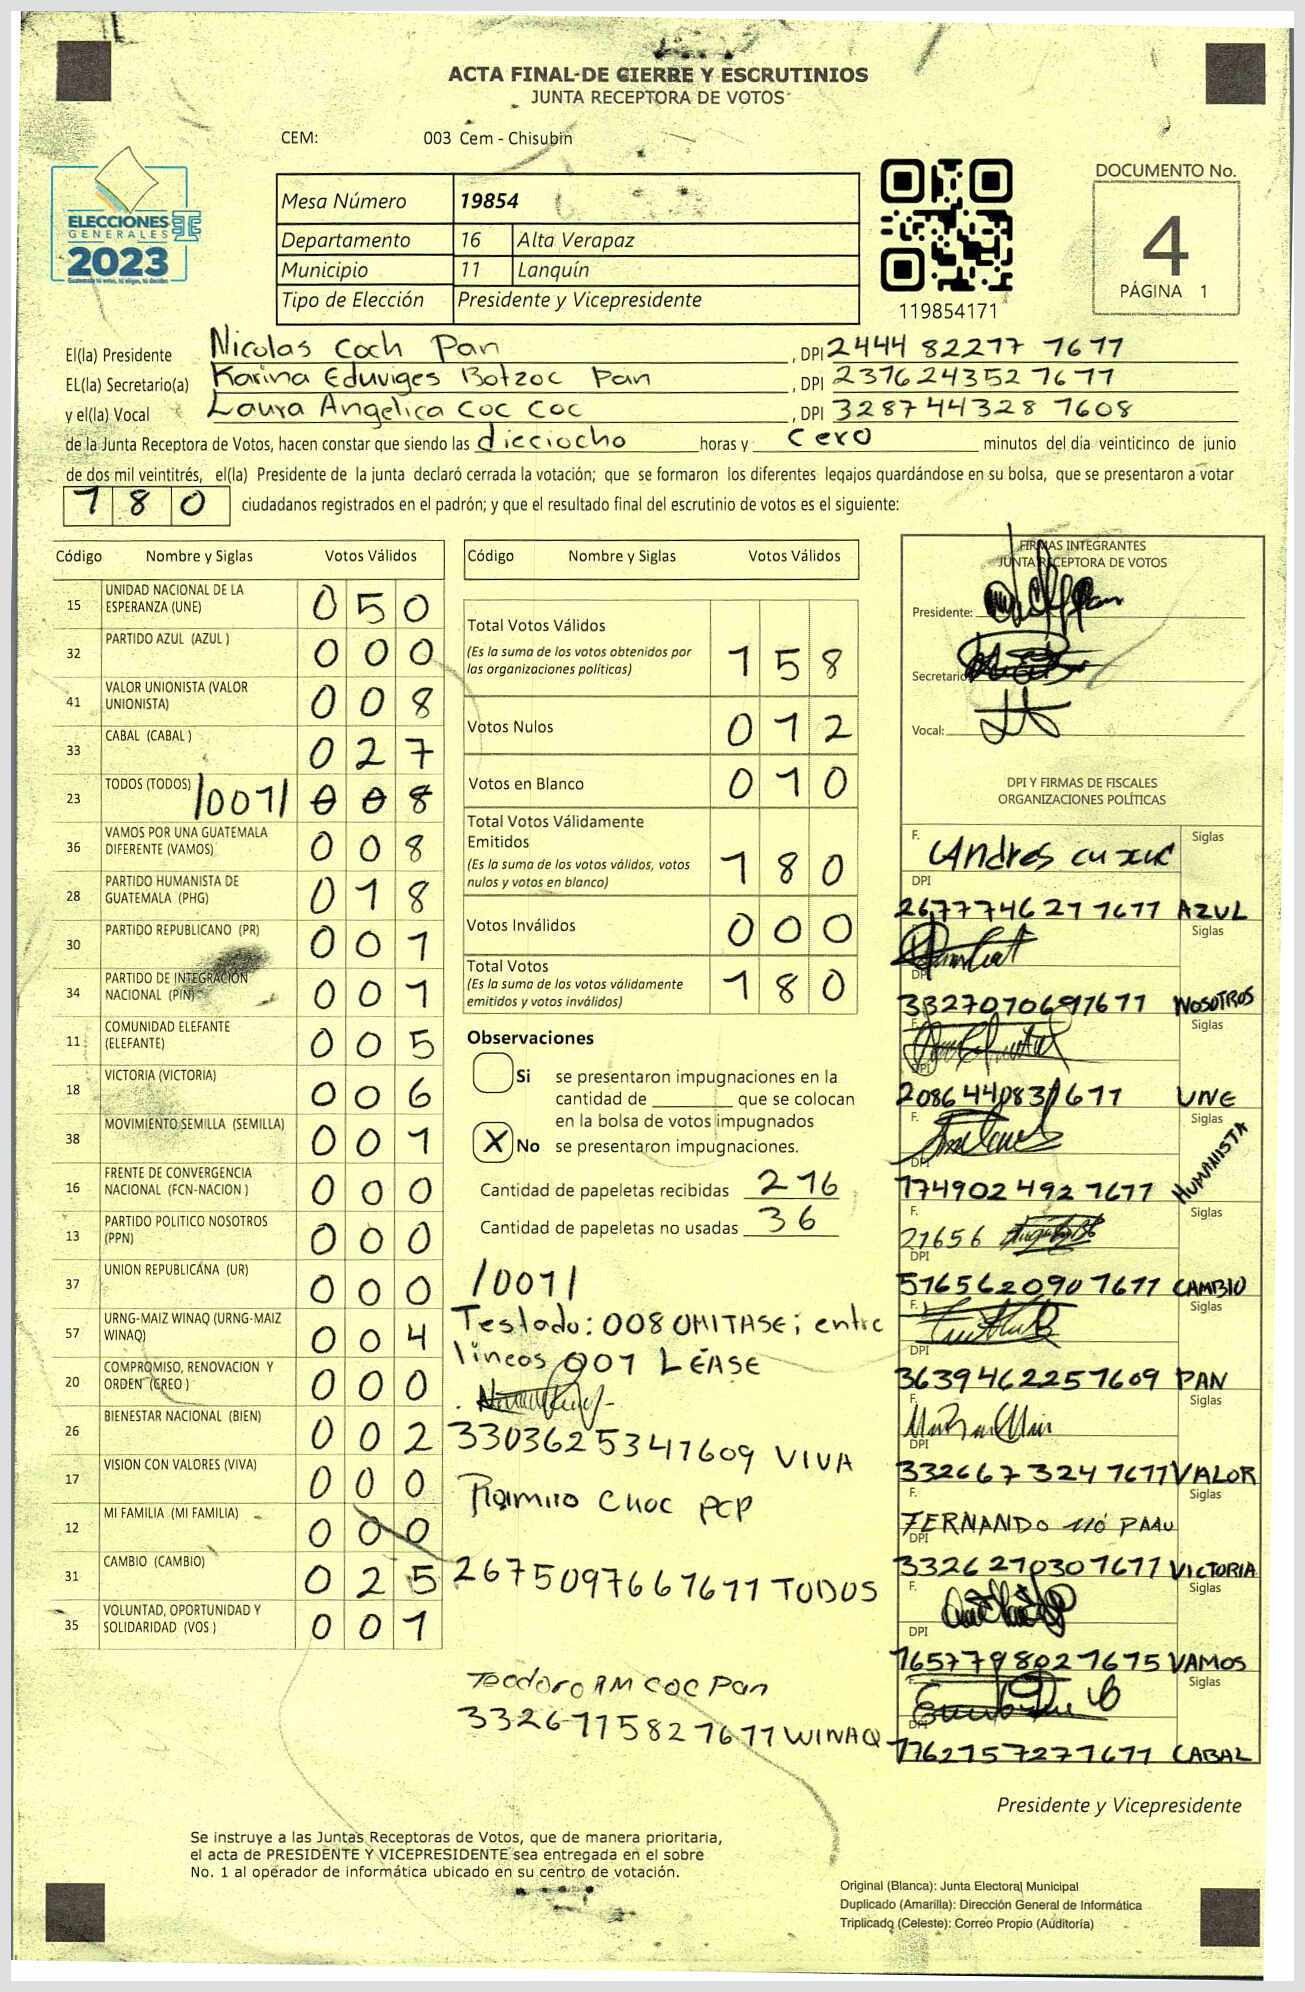 ACTA FINAL DE CIERRE Y ESCRUTINIOS
JUNTA RECEPTORA DE VOTOS
CEM: 003 Cem - Chisubin
ELECCIONES
GENERALES
2023
Mesa Número 19854
Departamento 16 Alta Verapaz
Municipio 11 Lanquín
Tipo de Elección Presidente y Vicepresidente
119854171
DOCUMENTO No.
4
PÁGINA 1
El(la) Presidente Nicolas Coch Pan , DPI 2444 82277 1611
EL(la) Secretario(a) Karina Eduviges Botzoc Pan , DPI 237624352 1611
y el(la) Vocal Laura Angelica Coc Coc , DPI 328744328 1608
de la Junta Receptora de Votos, hacen constar que siendo las dieciocho horas y cero minutos del día veinticinco de junio
de dos mil veintitrés, el(la) Presidente de la junta declaró cerrada la votación; que se formaron los diferentes legajos quardándose en su bolsa, que se presentaron a votar
180 ciudadanos registrados en el padrón; y que el resultado final del escrutinio de votos es el siguiente:
Código Nombre y Siglas Votos Válidos
15 UNIDAD NACIONAL DE LA ESPERANZA (UNE) 050
32 PARTIDO AZUL (AZUL ) 000
41 VALOR UNIONISTA (VALOR UNIONISTA) 008
33 CABAL (CABAL ) 027
23 TODOS (TODOS) /001/ 008
36 VAMOS POR UNA GUATEMALA DIFERENTE (VAMOS) 008
28 PARTIDO HUMANISTA DE GUATEMALA (PHG) 018
30 PARTIDO REPUBLICANO (PR) 001
34 PARTIDO DE INTEGRACIÓN NACIONAL (PIN) 001
11 COMUNIDAD ELEFANTE (ELEFANTE) 005
18 VICTORIA (VICTORIA) 006
38 MOVIMIENTO SEMILLA (SEMILLA) 001
16 FRENTE DE CONVERGENCIA NACIONAL (FCN-NACION ) 000
13 PARTIDO POLITICO NOSOTROS (PPN) 000
37 UNION REPUBLICANA (UR) 000
57 URNG-MAIZ WINAQ (URNG-MAIZ WINAQ) 004
20 COMPROMISO, RENOVACION Y ORDEN (CREO ) 000
26 BIENESTAR NACIONAL (BIEN) 002
17 VISION CON VALORES (VIVA) 000
12 MI FAMILIA (MI FAMILIA) 000
31 CAMBIO (CAMBIO) 025
35 VOLUNTAD, OPORTUNIDAD Y SOLIDARIDAD (VOS ) 001
Código Nombre y Siglas Votos Válidos
Total Votos Válidos
(Es la suma de los votos obtenidos por las organizaciones políticas) 158
Votos Nulos 012
Votos en Blanco 010
Total Votos Válidamente Emitidos
(Es la suma de los votos válidos, votos nulos y votos en blanco) 180
Votos Inválidos 000
Total Votos
(Es la suma de los votos válidamente emitidos y votos inválidos) 180
Observaciones
Si se presentaron impugnaciones en la
cantidad de ________ que se colocan
en la bolsa de votos impugnados
X No se presentaron impugnaciones.
Cantidad de papeletas recibidas 216
Cantidad de papeletas no usadas 36
/001/
Testado: 008 OMITASE; entre
lineos 001 LÉASE
330362534 1609 VIVA
Ramiro Choc PCP
267509766 1611 TODOS
Teodoro RM Coc Pan
332677582 1611 WINAQ
FIRMAS INTEGRANTES
JUNTA RECEPTORA DE VOTOS
Presidente:
Secretario
Vocal:
DPI Y FIRMAS DE FISCALES
ORGANIZACIONES POLÍTICAS
F. Andres cu xuc Siglas
DPI
267774627 1611 AZUL
Siglas
DPI
332707069 1611 NOSOTROS
F. Siglas
DPI
208644083 1611 UNE
F. Siglas
DPI
174902492 1611 HUMANISTA
F. Siglas
21656
DPI
516562090 1611 CAMBIO
F. Siglas
DPI
363946225 1609 PAN
F. Siglas
DPI
332667324 1611 VALOR
F. Siglas
FERNANDO PAAU
DPI
332627030 1611 VICTORIA
F. Siglas
DPI
165779802 1615 VAMOS
F. Siglas
DPI
176215727 1611 CABAL
Presidente y Vicepresidente
Se instruye a las Juntas Receptoras de Votos, que de manera prioritaria,
el acta de PRESIDENTE Y VICEPRESIDENTE sea entregada en el sobre
No. 1 al operador de informática ubicado en su centro de votación.
Original (Blanca): Junta Electoral Municipal
Duplicado (Amarilla): Dirección General de Informática
Triplicado (Celeste): Correo Propio (Auditoría)